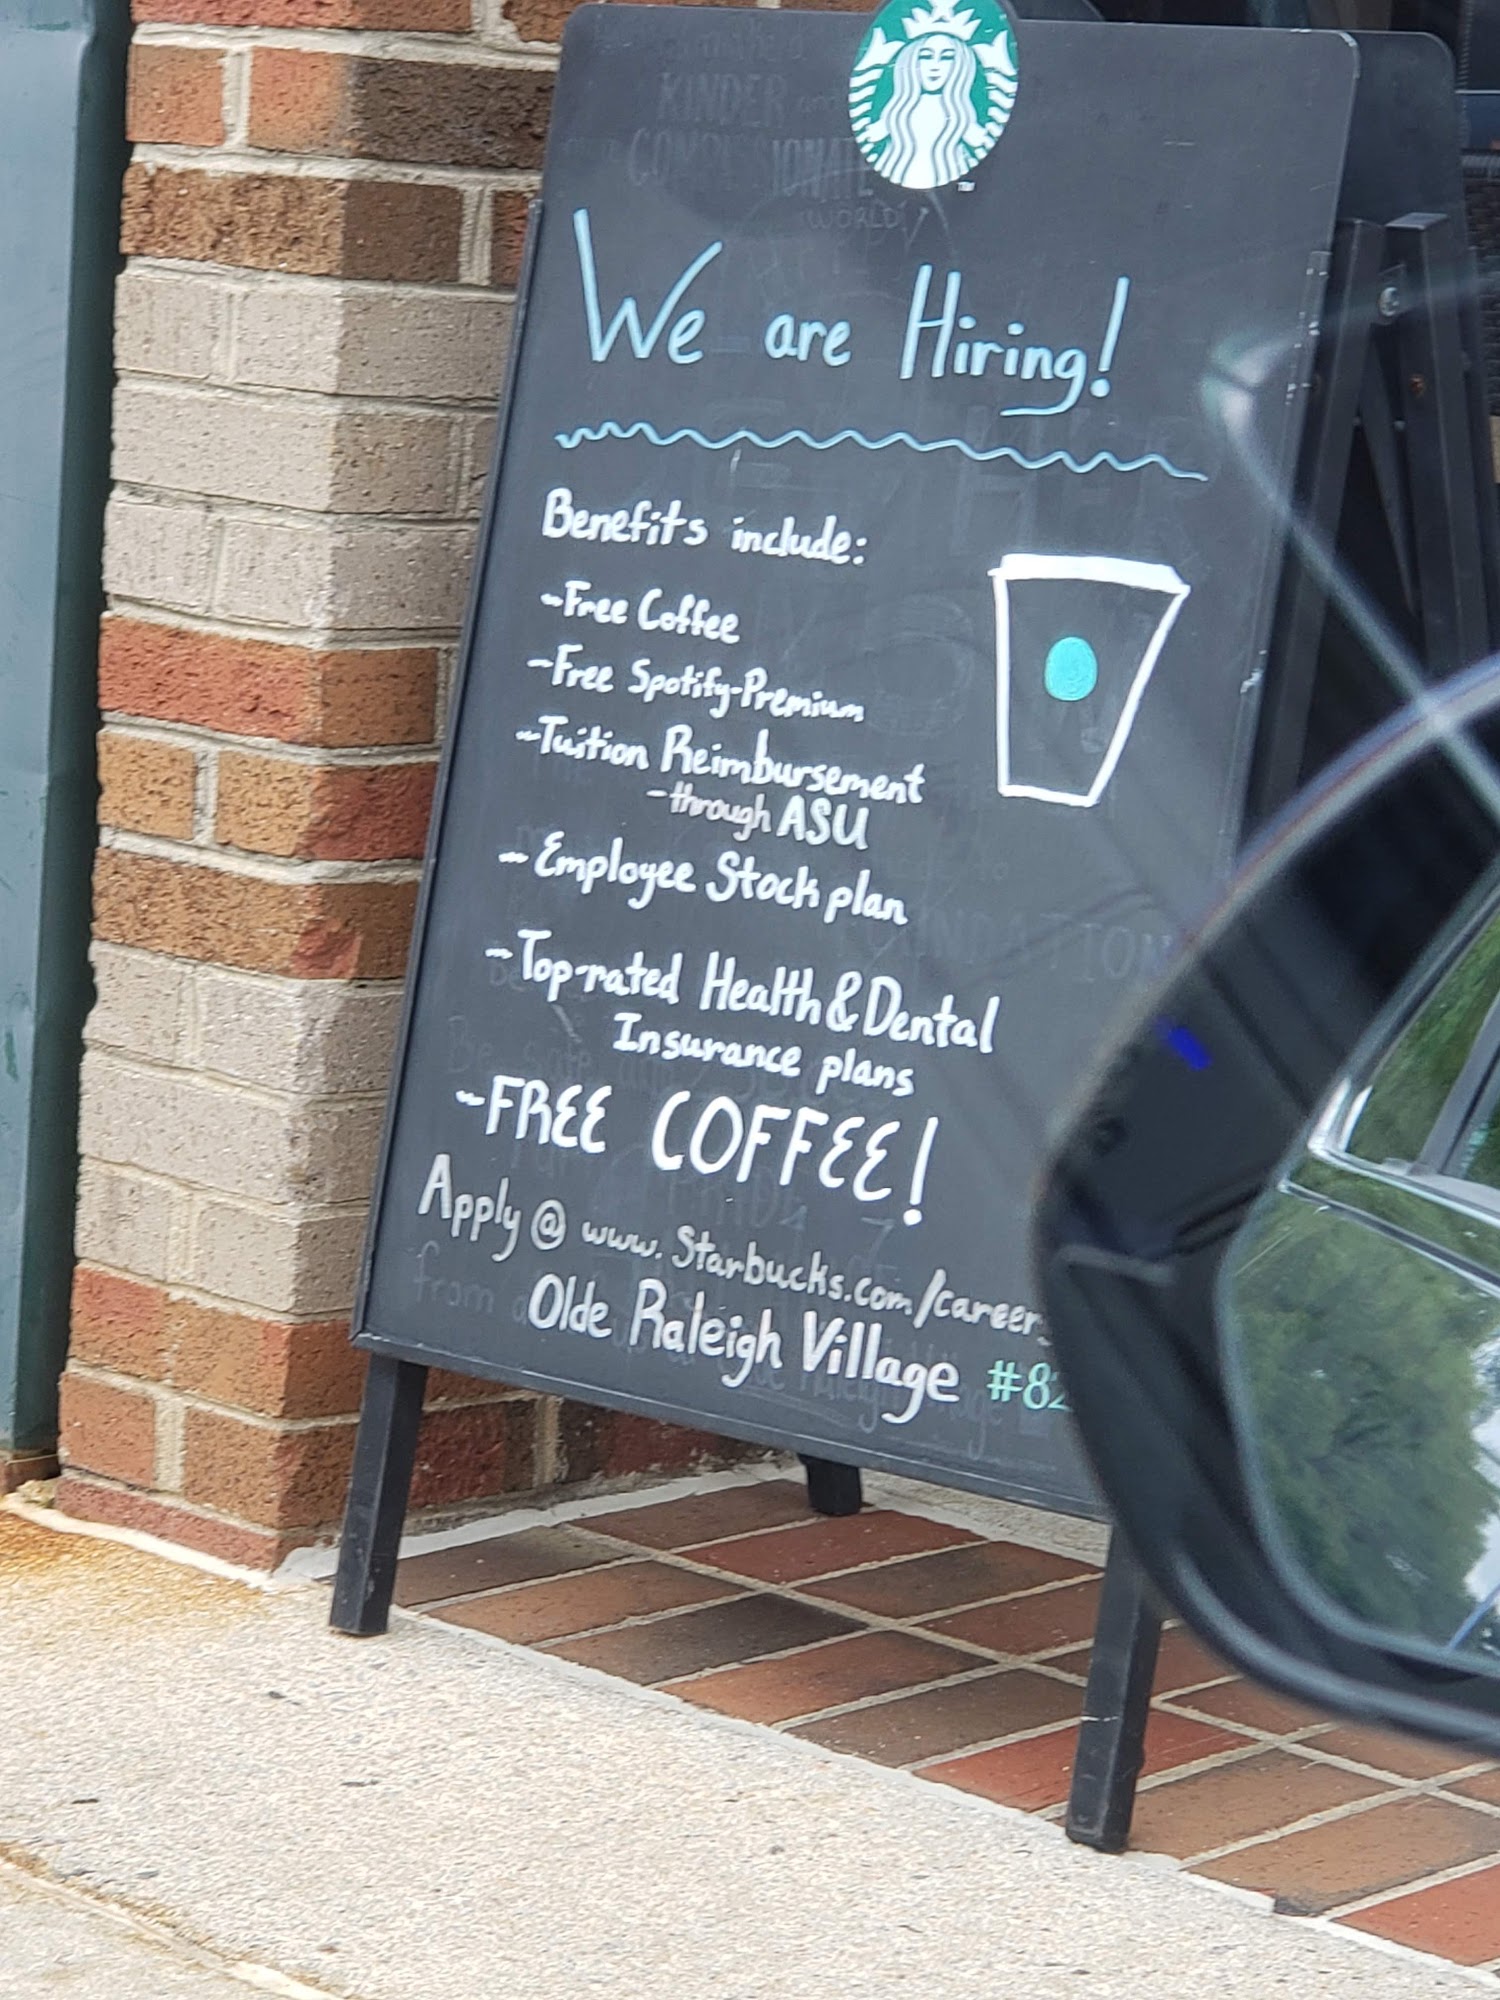 KINDER and
COMPASSIONATE
WORLD!
We are Hiring!
Benefits include:
~Free Coffee
~Free Spotify-Premium
~Tuition Reimbursement
-through ASU
~Employee Stock plan
~Top-rated Health & Dental
Insurance plans
~FREE COFFEE!
Apply @ www.Starbucks.com/careers
Olde Raleigh Village #82